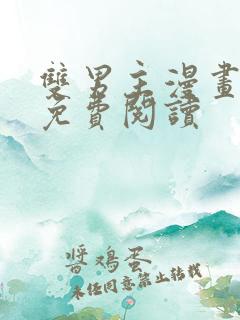 雙男主漫畫
免費閱讀
醬鸡蛋
未经同意禁止转载